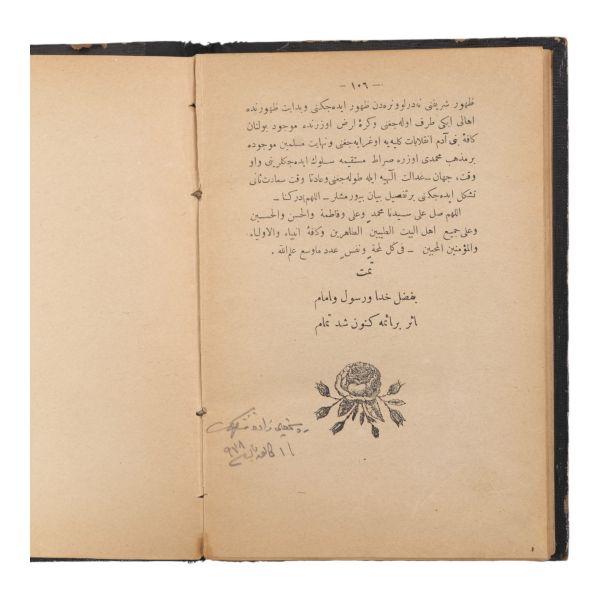 — ١٠٦ —
ظهور شريفنى نه‌درلو ونره‌دن ظهور ايده‌جكنى وبدايت ظهورنده
اهالى ايكى طرف اوله‌جغنى وكرۀ ارض اوزرنده موجود بولنان
كافۀ بنى آدم انقلابات كليه‌يه اوغرايه‌جغنى ونهايت مسلمين موجوده
بر مذهب محمدى اوزره صراط مستقيمه سلوك ايده‌جكلرينى واو
وقت، جهان ــ عدالت الٓهيه ايله طوله‌جغنى وعادتا وقت سعادت ثانى
تشكل ايده‌جكنى بر تفصيل بيان بيورمشلر ــ اللهم ادركنا ــ
اللهم صل على سيدنا محمد وعلى وفاطمة والحسن والحسين
وعلى جميع اهل البيت الطيبين الطاهرين وكافة انبياء والاولياء
والمؤمنين المحبين ــ فى كل لمحة ونفس عدد ماوسع علم الله .
تمت
بفضل خدا ورسول وامام
اثر بر ائمه كنون شد تمام